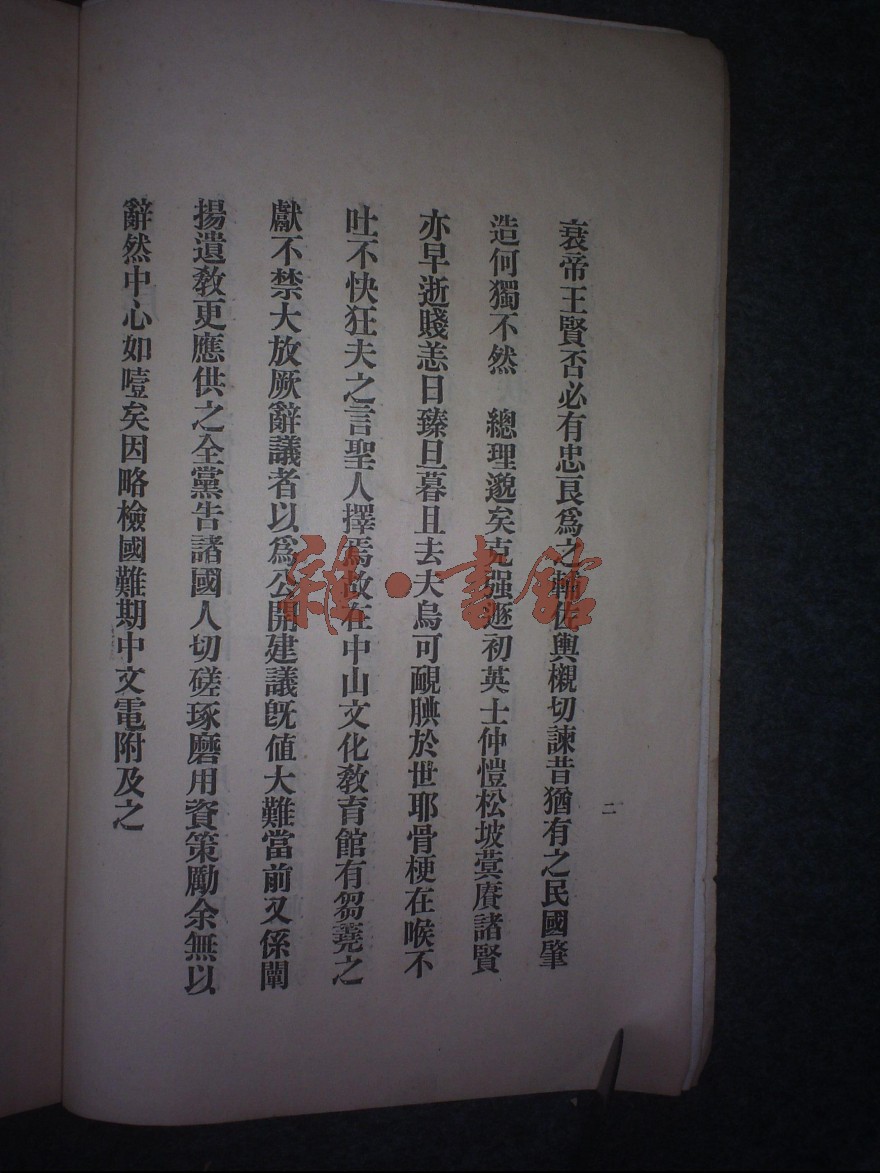 衰帝王賢否必有忠良爲之輔佐輿櫬切諫昔猶有之民國肇
造何獨不然　總理邈矣克强遯初英士仲愷松坡蓂賡諸賢
亦早逝賤恙日臻旦暮且去夫烏可靦腆於世耶骨梗在喉不
吐不快狂夫之言聖人擇焉故在中山文化敎育館有芻蕘之
獻不禁大放厥辭議者以爲公開建議旣值大難當前又係闡
揚遺敎更應供之全黨告諸國人切磋琢磨用資策勵余無以
辭然中心如噎矣因略檢國難期中文電附及之
二
雜·書館